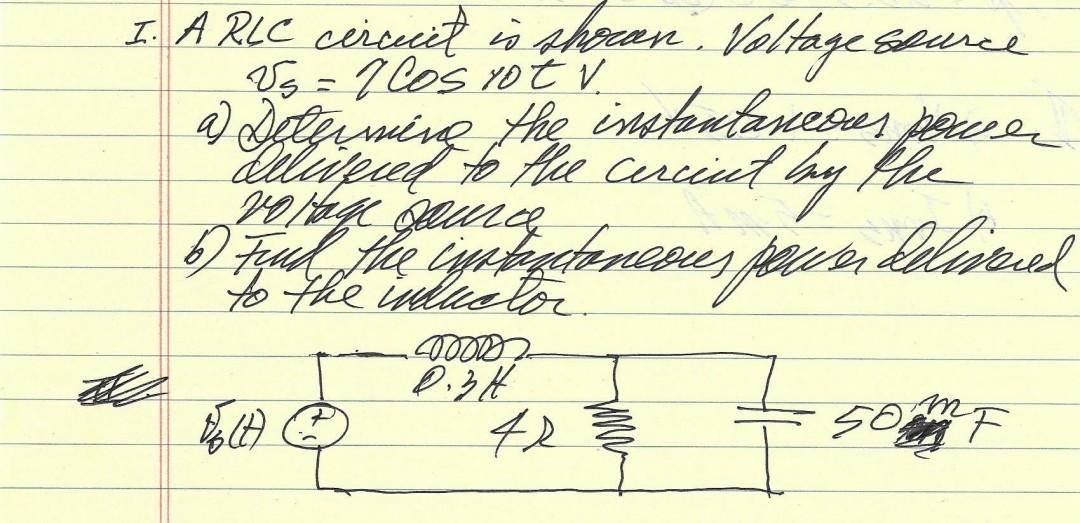 I. A RLC circuit is shown. Voltage source
vs = 7 Cos 10 t V.
a) Determine the instantaneous power
delivered to the circuit by the
voltage source
b) Find the instantaneous power delivered
to the inductor.
0.3H
vs(t)
+
-
4Ω
50 m F